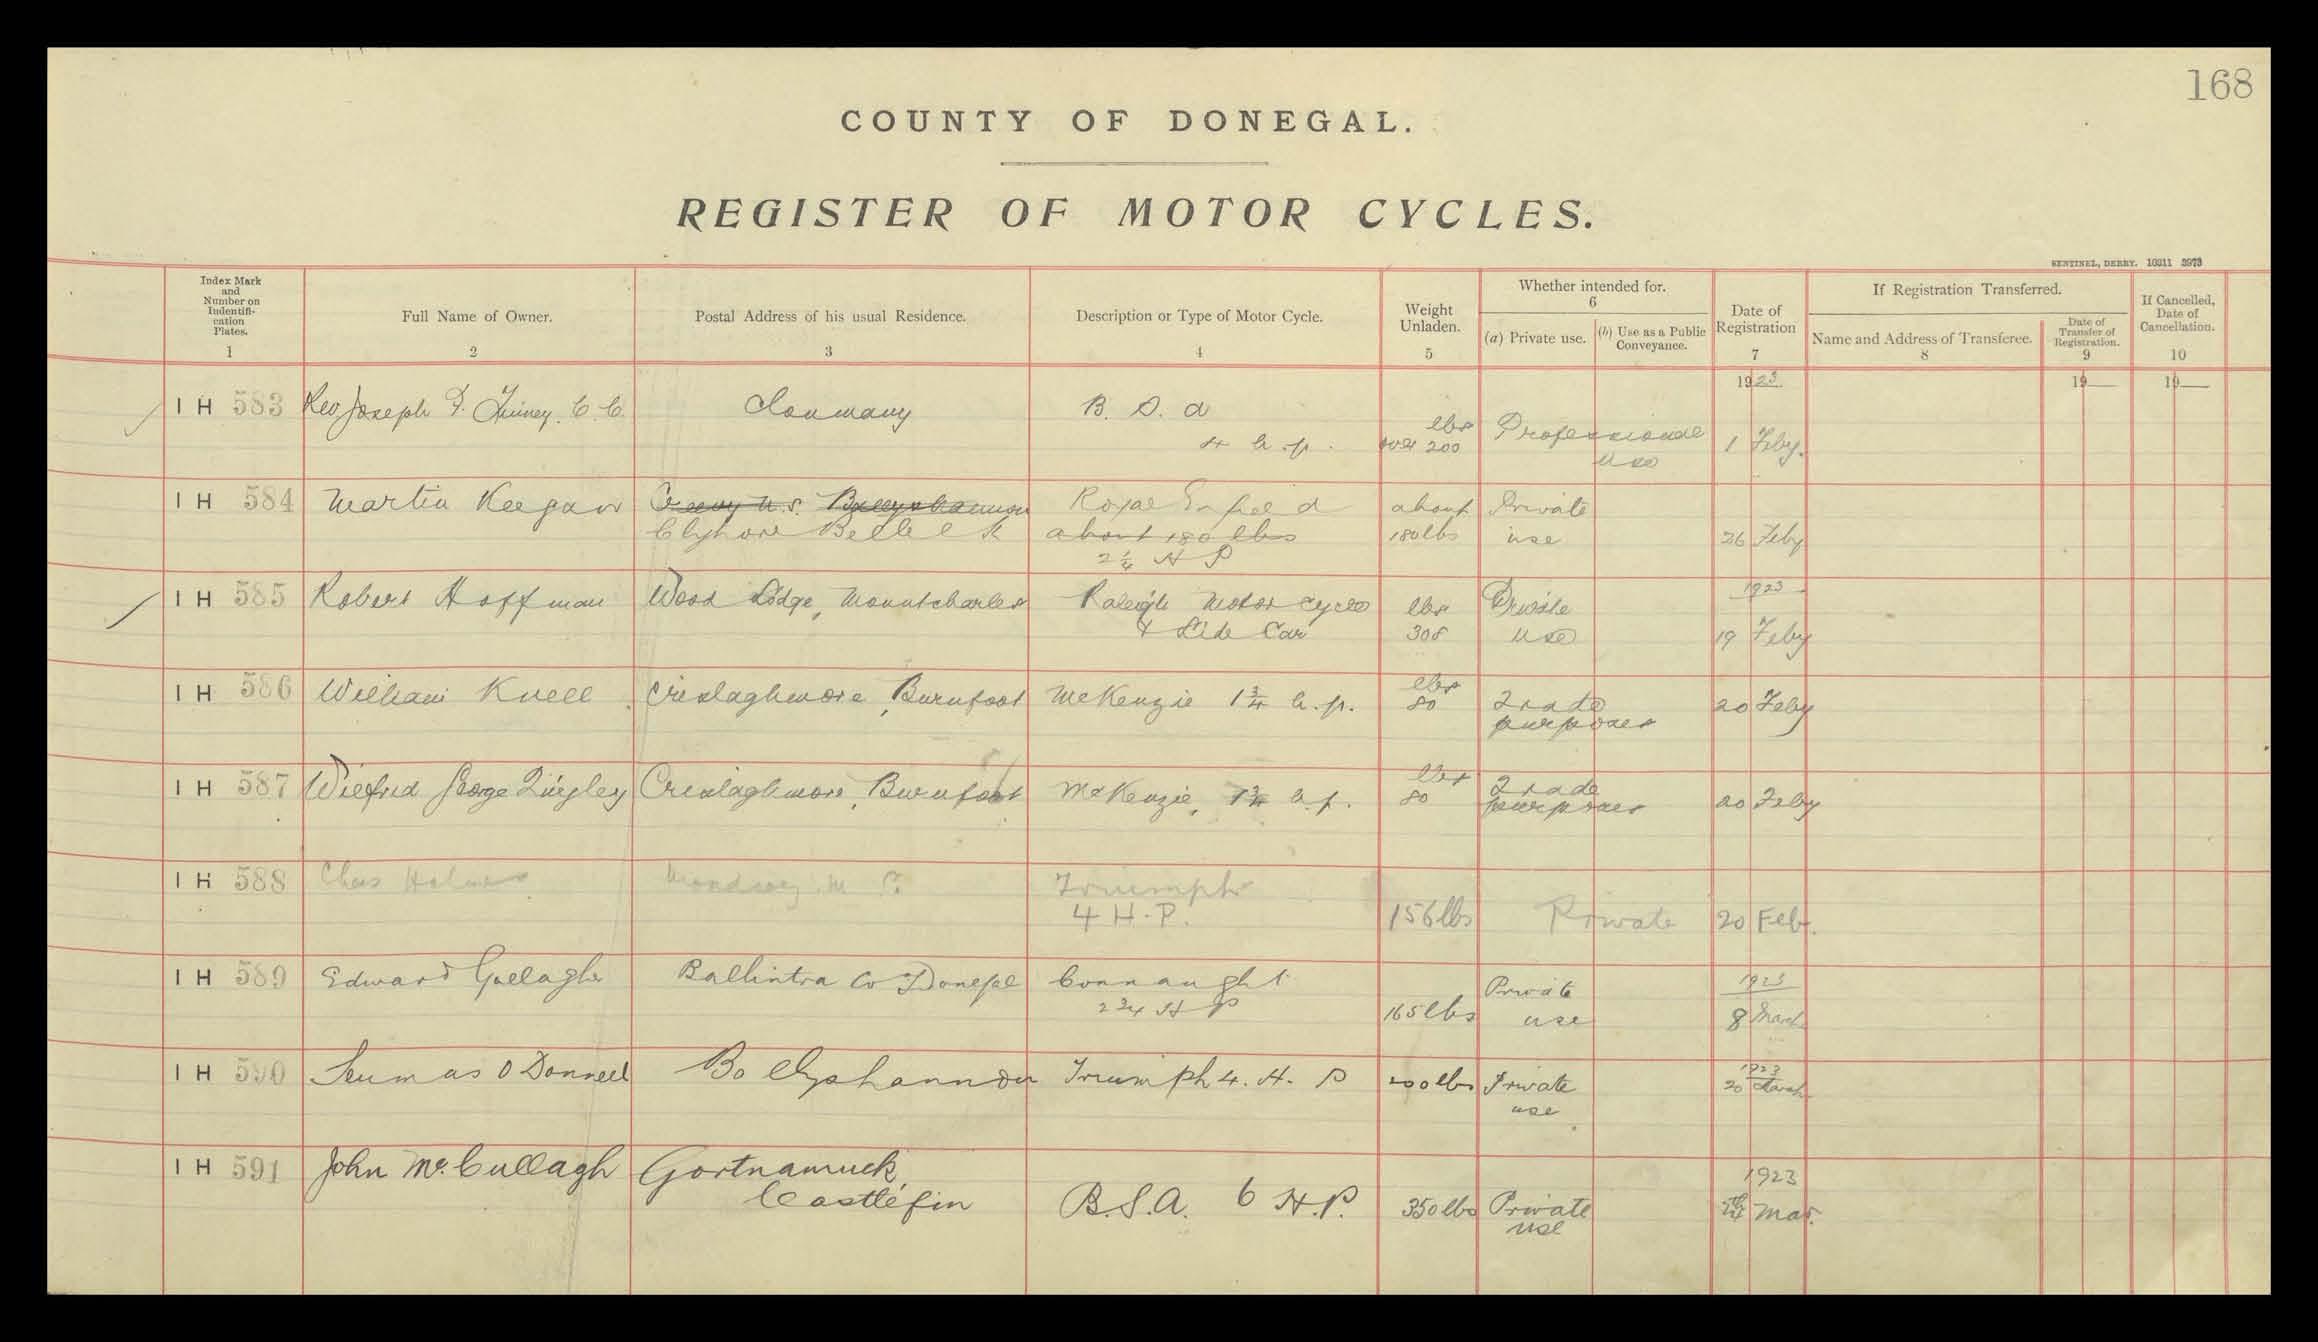 168
COUNTY OF DONEGAL.
REGISTER OF MOTOR CYCLES.
SENTINEL, DERRY. 10311 3973
Index Mark
and
Number on
Indentifi-
cation
Plates.
1
Full Name of Owner.
2
Postal Address of his usual Residence.
3
Description or Type of Motor Cycle.
4
Weight
Unladen.
5
Whether intended for.
6
(a) Private use.
(b) Use as a Public
Conveyance.
Date of
Registration
7
If Registration Transferred.
Name and Address of Transferee.
8
Date of
Transfer of
Registration.
9
If Cancelled,
Date of
Cancellation.
10
1923
19
19
I H 583 Rev Joseph C. C. Clonmany B. S. A
4 h.p.
lbs
over 200
Professional
use
1 Feby.
I H 584 Martin Keegan Creevy N.S. Ballyshannon
Clyhore Belleek
Royal Enfield
about 180 lbs
2 1/4 H P
about
180 lbs
Private
use
26 Feby
I H 585 Robert Hoffman Wood Lodge, Mountcharles
Raleigh Motor Cycle
& Side Car
lbs
308
Private
use
1923
19 Feby
I H 586 William Knell Crislaghmore, Burnfoot McKenzie 1 3/4 h.p.
lbs
80
Trade
purposes
20 Feby
I H 587 Wilfrid George Quigley Crislaghmore, Burnfoot McKenzie, 1 3/4 h.p.
lbs
80
Trade
purposes
20 Feby
I H 588 Chas Holmes Triumph
4 H.P.
156 lbs
Private
20 Feb.
I H 589 Edward Gallagher Ballintra Co Donegal Connaught
2 3/4 H P
165 lbs
Private
use
1923
8 March
I H 590 Seumas O Donnell Ballyshannon Triumph 4. H. P
200 lbs
Private
use
1923
20 March
I H 591 John McCullagh Gortnamuck,
Castlefin
B.S.A. 6 H.P.
350 lbs
Private
use
1923
Mar.